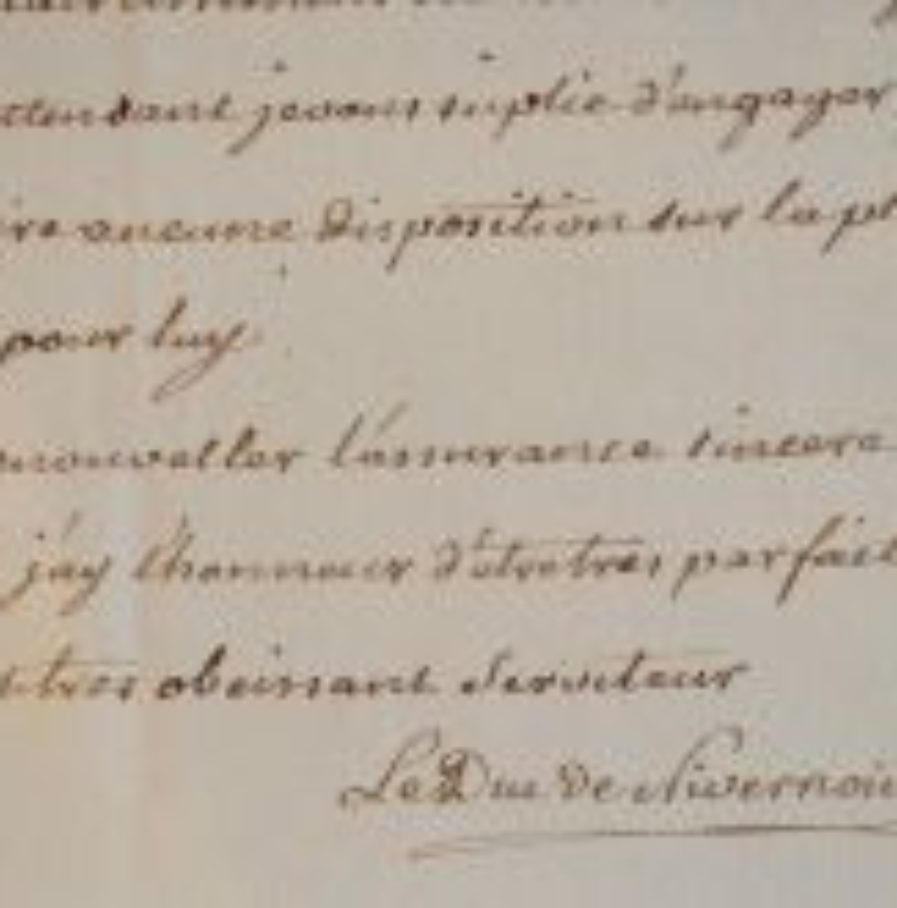 attendant je vous suplie d'engager
ire aucune disposition sur la pl
pour luy.
enouveller l'assurance sincere
j'ay l'honneur d'etre tres parfait
et tres obeissant Serviteur
Le Duc de Nivernois